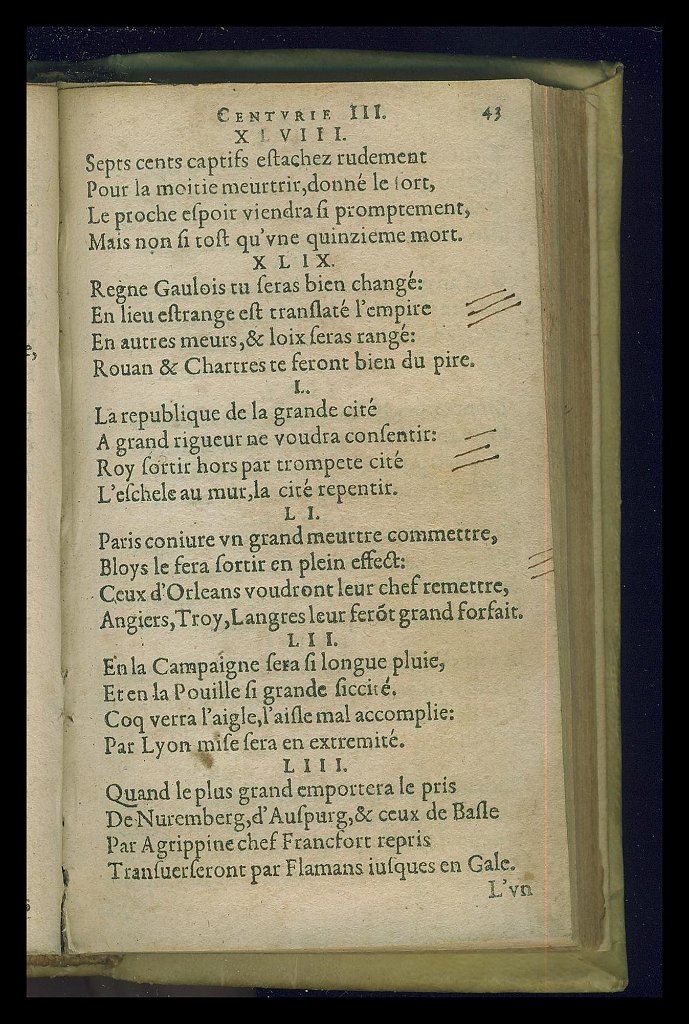 CENTVRIE III. 43
XLVIII.
Septs cents captifs eſtachez rudement
Pour la moitie meurtrir,donné le ſort,
Le proche eſpoir viendra ſi promptement,
Mais non ſi toſt qu'vne quinzieme mort.
XLIX.
Regne Gaulois tu ſeras bien changé:
En lieu eſtrange eſt tranſlaté l'empire
En autres meurs,& loix ſeras rangé:
Rouan & Chartres te feront bien du pire.
L.
La republique de la grande cité
A grand rigueur ne voudra conſentir:
Roy ſortir hors par trompete cité
L'eſchele au mur,la cité repentir.
LI.
Paris coniure vn grand meurtre commettre,
Bloys le fera ſortir en plein effect:
Ceux d'Orleans voudront leur chef remettre,
Angiers,Troy,Langres leur ferõt grand forfait.
LII.
En la Campaigne ſera ſi longue pluie,
Et en la Pouille ſi grande ſiccité.
Coq verra l'aigle,l'aiſle mal accomplie:
Par Lyon miſe ſera en extremité.
LIII.
Quand le plus grand emportera le pris
De Nuremberg,d'Auſpurg,& ceux de Baſle
Par Agrippine chef Francfort repris
Tranſuerſeront par Flamans iuſques en Gale.
L'vn